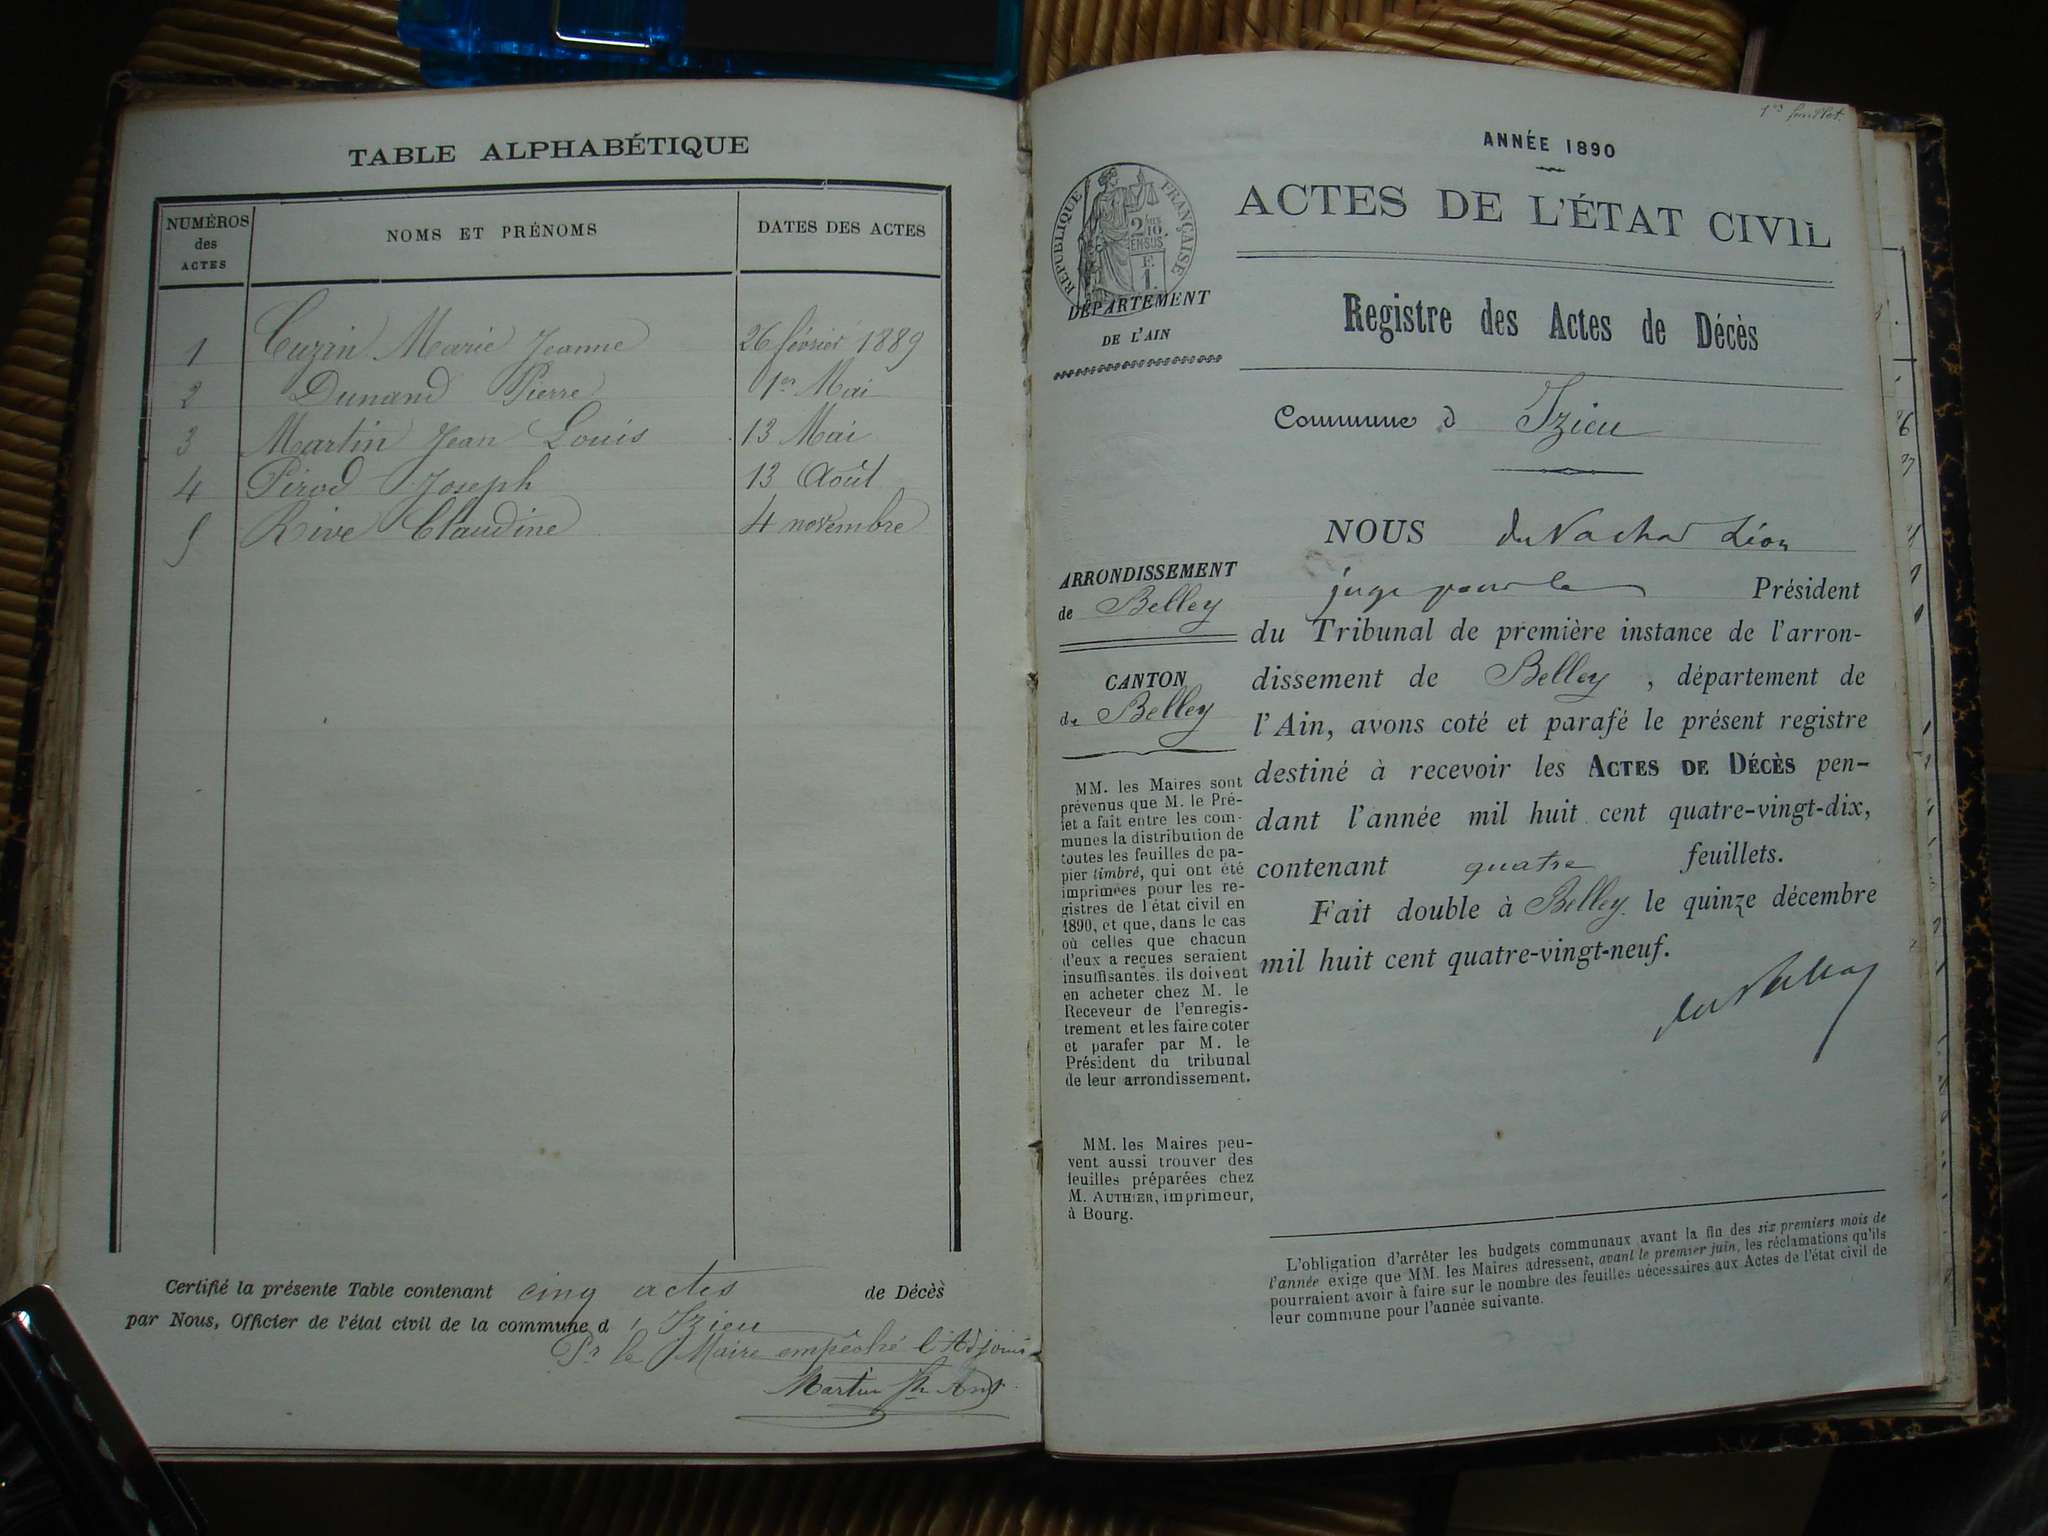 TABLE ALPHABÉTIQUE
NUMÉROS des ACTES
NOMS ET PRÉNOMS
DATES DES ACTES
1 Cuzin Marie Jeanne 26 février 1889
2 Dunand Pierre 1er Mai
3 Martin Jean Louis 13 Mai
4 Pirod Joseph 13 Août
5 Rive Claudine 4 novembre
Certifié la présente Table contenant cinq actes de Décès
par Nous, Officier de l'état civil de la commune d'Izieu
Pr le Maire empêché l'Adjoint
Martin
1er feuillet.
ANNÉE 1890
ACTES DE L'ÉTAT CIVIL
RÉPUBLIQUE FRANÇAISE
2/10 EN SUS
F. 1.
DÉPARTEMENT
DE L'AIN
Registre des Actes de Décès
Commune d Izieu
ARRONDISSEMENT
de Belley
CANTON
de Belley
MM. les Maires sont
prévenus que M. le Pré-
fet a fait entre les com-
munes la distribution de
toutes les feuilles de pa-
pier timbré, qui ont été
imprimées pour les re-
gistres de l'état civil en
1890, et que, dans le cas
où celles que chacun
d'eux a reçues seraient
insuffisantes, ils doivent
en acheter chez M. le
Receveur de l'enregis-
trement et les faire coter
et parafer par M. le
Président du tribunal
de leur arrondissement.
MM. les Maires peu-
vent aussi trouver des
feuilles préparées chez
M. AUTHIER, imprimeur,
à Bourg.
NOUS du Vachat Léon
juge pour le Président
du Tribunal de première instance de l'arron-
dissement de Belley, département de
l'Ain, avons coté et parafé le présent registre
destiné à recevoir les ACTES DE DÉCÈS pen-
dant l'année mil huit cent quatre-vingt-dix,
contenant quatre feuillets.
Fait double à Belley, le quinze décembre
mil huit cent quatre-vingt-neuf.
du Vachat
L'obligation d'arrêter les budgets communaux avant la fin des six premiers mois de
l'année exige que MM. les Maires adressent, avant le premier juin, les réclamations qu'ils
pourraient avoir à faire sur le nombre des feuilles nécessaires aux Actes de l'état civil de
leur commune pour l'année suivante.